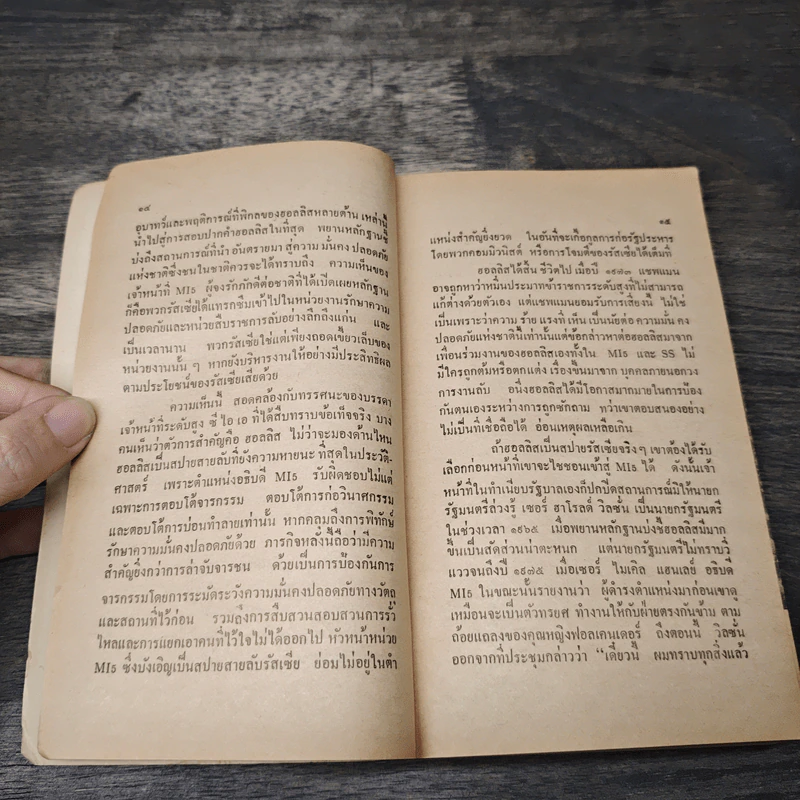 ๑๔
อุบาทว์และพฤติการณ์ที่พิกลของฮอลลิสหลายด้าน เหล่านี้
นำไปสู่การสอบปากคำฮอลลิสในที่สุด พยานหลักฐานชี้
บ่งถึงสถานการณ์ที่นำ อันตรายมา สู่ความ มั่นคง ปลอดภัย
แห่งชาติซึ่งชนในชาติควรจะได้ทราบถึง ความเห็นของ
เจ้าหน้าที่ MI5 ผู้จงรักภักดีต่อชาติที่ได้เปิดเผยหลักฐาน
ก็คือพวกรัสเซียได้แทรกซึมเข้าไปในหน่วยงานรักษาความ
ปลอดภัยและหน่วยสืบราชการลับอย่างลึกถึงแก่น และ
เป็นเวลานาน พวกรัสเซียใช่แต่เพียงถอดเขี้ยวเล็บของ
หน่วยงานนั้น ๆ หากยังบริหารงานให้อย่างมีประสิทธิผล
ตามประโยชน์ของรัสเซียเสียด้วย
ความเห็นนี้ สอดคล้องกับทรรศนะของบรรดา
เจ้าหน้าที่ระดับสูง ซี ไอ เอ ที่ได้สืบทราบข้อเท็จจริง บาง
คนเห็นว่าตัวการสำคัญคือ ฮอลลิส ไม่ว่าจะมองด้านไหน
ฮอลลิสเป็นสปายสายลับที่ยังความหายนะ ที่สุดในประวัติ-
ศาสตร์ เพราะตำแหน่งอธิบดี MI5 รับผิดชอบไม่แต่
เฉพาะการตอบโต้จารกรรม ตอบโต้การก่อวินาศกรรม
และตอบโต้การบ่อนทำลายเท่านั้น หากคลุมถึงการพิทักษ์
รักษาความมั่นคงปลอดภัยด้วย ภารกิจหลังนี้ถือว่ามีความ
สำคัญยิ่งกว่าการล่าจับจารชน ด้วยเป็นการป้องกันการ
จารกรรมโดยการระมัดระวังความมั่นคงปลอดภัยทางวัตถุ
และสถานที่ไว้ก่อน รวมถึงการสืบสวนสอบสวนการรั่ว
ไหลและการแยกเอาคนที่ไว้ใจไม่ได้ออกไป หัวหน้าหน่วย
MI5 ซึ่งบังเอิญเป็นสปายสายลับรัสเซีย ย่อมไม่อยู่ในตำ
๑๕
แหน่งสำคัญยิ่งยวด ในอันที่จะเกื้อกูลการก่อรัฐประหาร
โดยพวกคอมมิวนิสต์ หรือการโจมตีของรัสเซียได้เต็มที่
ฮอลลิสได้สิ้น ชีวิตไป เมื่อปี ๑๙๗๓ แชพแมน
อาจถูกหาว่าหมิ่นประมาทข้าราชการระดับสูงที่ไม่สามารถ
แก้ต่างด้วยตัวเอง แต่แชพแมนยอมรับการเสี่ยงนี้ ไม่ใช่
เป็นเพราะว่าความ ร้าย แรงที่ เห็น เป็นนัยต่อ ความมั่น คง
ปลอดภัยแห่งชาตินี้เท่านั้นแต่ข้อกล่าวหาต่อฮอลลิสมาจาก
เพื่อนร่วมงานของฮอลลิสเองทั้งใน MI5 และ SS ไม่
มีใครถูกต้มหรือตกแต่ง เรื่องขึ้นมาจาก บุคคลภายนอกวง
การงานลับ อนึ่งฮอลลิสได้มีโอกาสมากมายในการป้อง
กันตนเองระหว่างการถูกซักถาม ทว่าเขาตอบสนองอย่าง
ไม่เป็นที่เชื่อถือได้ อ่อนเหตุผลเหลือเกิน
ถ้าฮอลลิสเป็นสปายรัสเซียจริง ๆ เขาต้องได้รับ
เลือกก่อนหน้าที่เขาจะไชชอนเข้าสู่ MI5 ได้ ดังนั้นเจ้า
หน้าที่ในทำเนียบรัฐบาลเองก็ปกปิดสถานการณ์มิให้นายก
รัฐมนตรีล่วงรู้ เซอร์ ฮาโรลด์ วิลซั่น เป็นนายกรัฐมนตรี
ในช่วงเวลา ๑๙๖๕ เมื่อพยานหลักฐานบ่งชี้ฮอลลิสมีมาก
ขึ้นเป็นสัดส่วนน่าตะหนก แต่นายกรัฐมนตรีไม่ทราบวี่
แววจนถึงปี ๑๙๗๕ เมื่อเซอร์ ไมเคิล แฮนเลย์ อธิบดี
MI5 ในขณะนั้นรายงานว่า ผู้ดำรงตำแหน่งมาก่อนเขาดู
เหมือนจะเป็นตัวทรยศ ทำงานให้กับฝ่ายตรงกันข้าม ตาม
ถ้อยแถลงของคุณหญิงฟอลเคนเดอร์ ถึงตอนนี้ วิลซั่น
ออกจากที่ประชุมกล่าวว่า "เดี๋ยวนี้ ผมทราบทุกสิ่งแล้ว